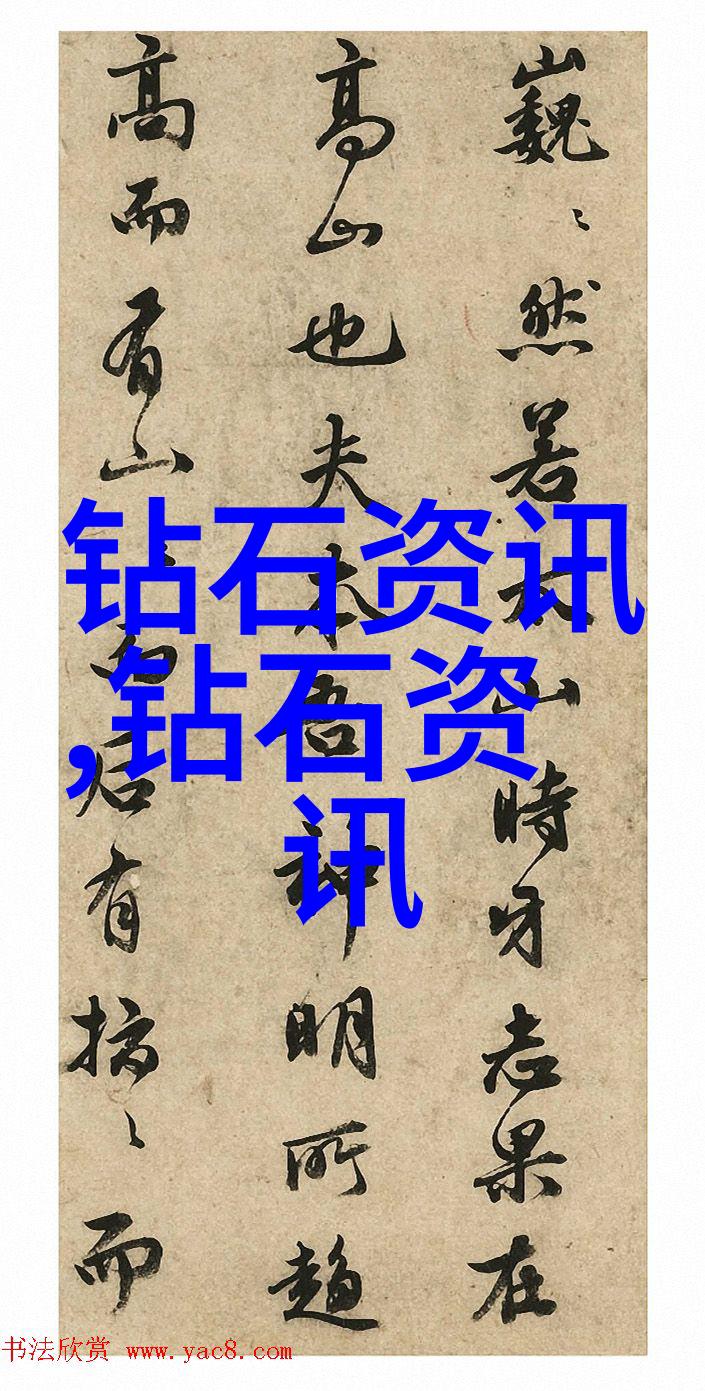 巍〻然若太山時牙志果在
高山也夫本吾神明所趨
高而有山后有〻而
钻石资讯
,钻石资
讯
书法欣赏 www.yac8.com